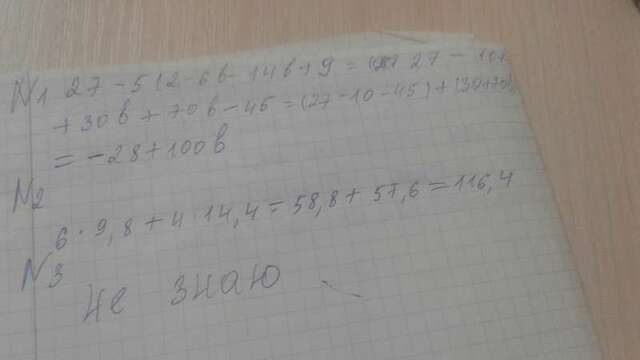 N1 27-5(2-6b-14b+9)= 27-10+
+30b+70b-45=(27-10-45)+(30b+70b)
=-28+100b
N2
6·9,8+4·14,4=58,8+57,6=116,4
N3
Не знаю